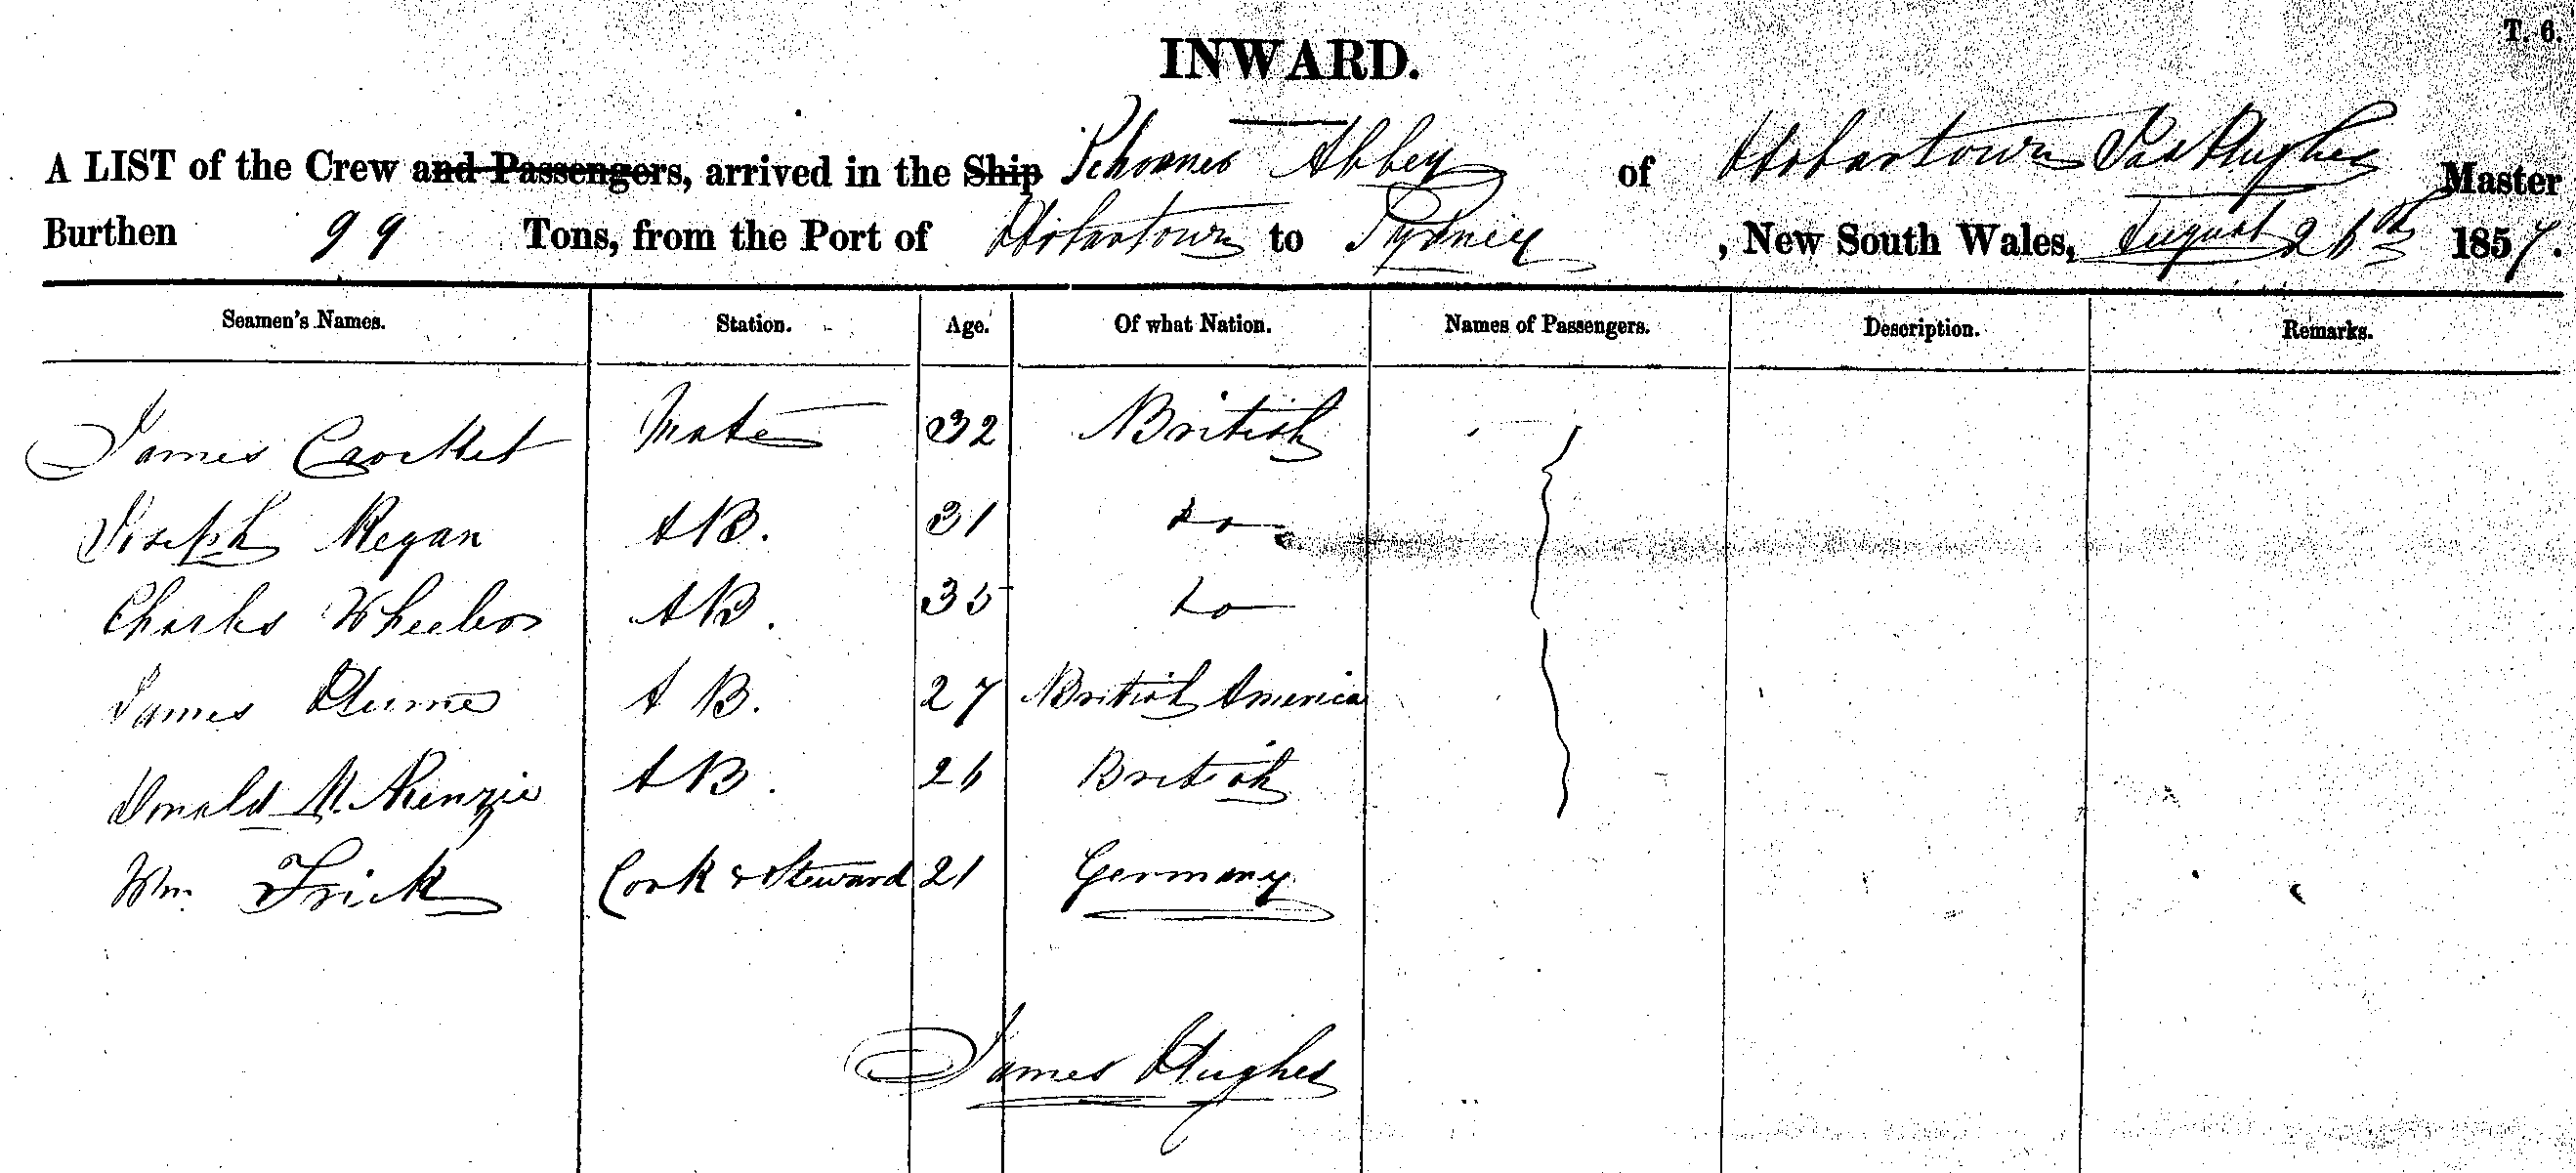 T. 6.
INWARD.
A LIST of the Crew and Passengers, arrived in the Ship Schooner Abbey of Hobartown Jas Hughes Master
Burthen 99 Tons, from the Port of Hobartown to Sydney, New South Wales, August 26th 1857.
Seamen's Names. Station. Age. Of what Nation. Names of Passengers. Description. Remarks.
James Crocket Mate 32 British
Joseph Regan AB. 31 do
Charles Wheeler AB. 35 do
James Hume AB. 27 British America
Donald McKenzie AB. 26 British
Wm. Frick Cook & Steward 21 Germany
James Hughes